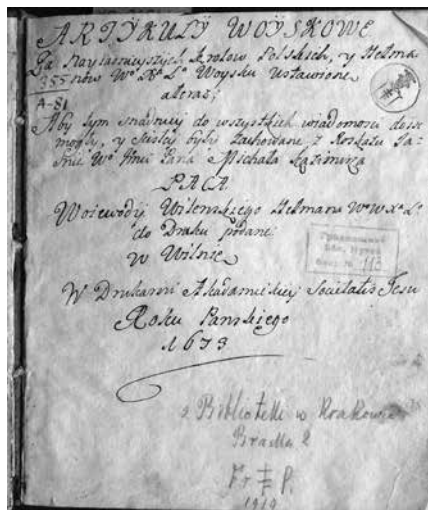 ARTYKUŁY WOYSKOWE
Za Nayiasnieyszych Krolow Polskich, y Hetma
now Wº Xª Lº Woysku Ustawione
a teraz,
355
A-81
Aby tym snadniey do wszystkich wiadomosci dość
mogły, y ścisley były zachowane z Roskazu Ja
snie Wº Jmci Pana Michała Kazimirza
PACA
Woiewody Wilenskiego Hetmana Wº W Xª Lº
do Druku podane
w Wilnie
W Drukarni Akademickiey Societatis Jesu
Roku Panskiego
1673
113
z Biblioteki w Krakowie
Bracka 2
Fr P.
1919